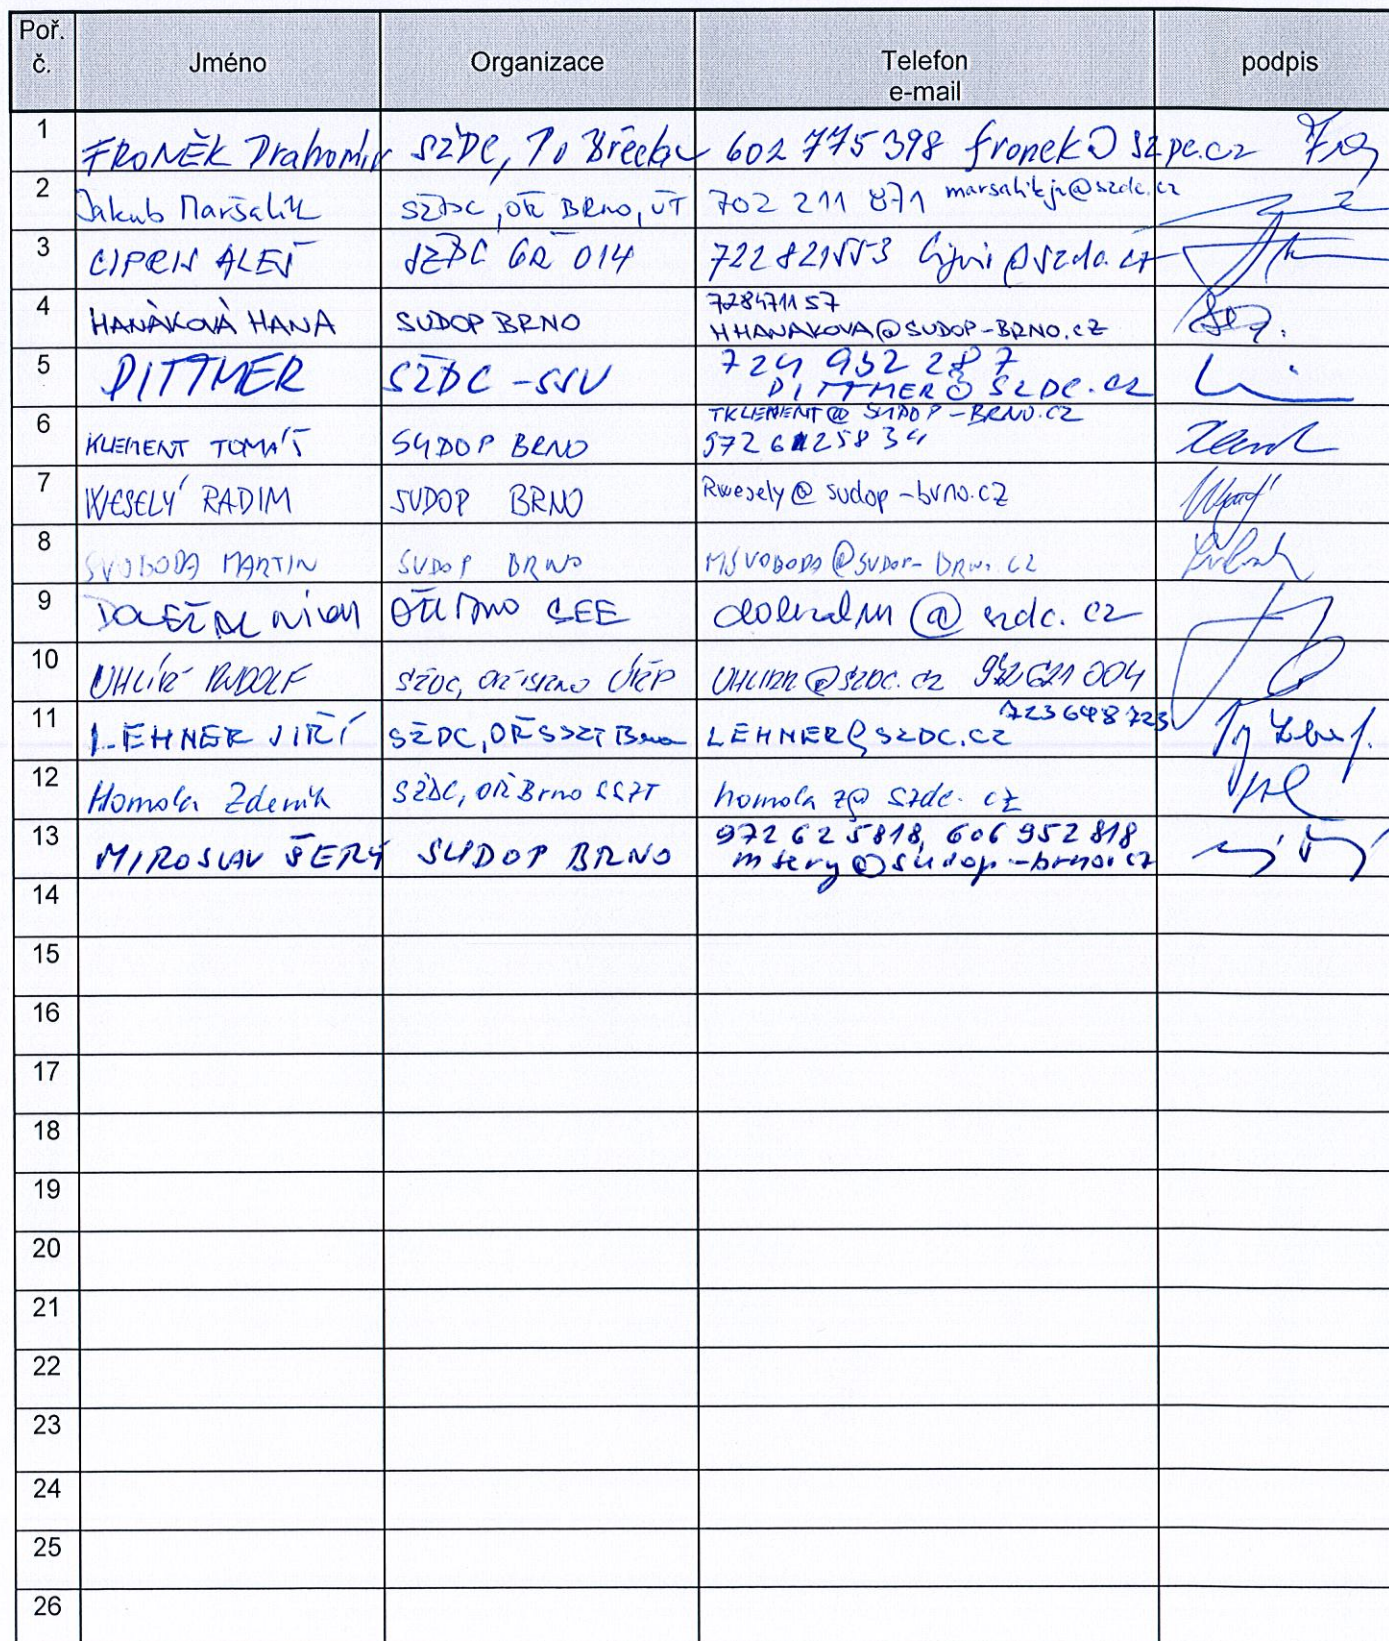 Poř. č. Jméno Organizace Telefon e-mail podpis
1 FRONĚK Drahomír SŽDC, PO Břeclav 602 775 398 fronek@szdc.cz
2 Jakub Maršalík SŽDC, OŘ BRNO, ÚT 702 211 871 marsalikja@szdc.cz
3 CIPRIS ALEŠ SŽDC GŘ 014 722821553
4 HANÁKOVÁ HANA SUDOP BRNO 728471157
HHANAKOVA@SUDOP-BRNO.CZ
5 DITTMER SŽDC - SSV 724 932 287
DITTMER@SZDC.CZ
6 KLEMENT TOMÁŠ SUDOP BRNO TKLEMENT@SUDOP-BRNO.CZ
972625834
7 WESELÝ RADIM SUDOP BRNO Rwesely@sudop-brno.cz
8 SVOBODA MARTIN SUDOP BRNO MSVOBODA@SUDOP-BRNO.CZ
9 DOLEŽAL MILAN OŘ BRNO SEE dolezalm@szdc.cz
10 UHLÍŘ RUDOLF SŽDC, OŘ BRNO UHLIRR@SZDC.CZ
11 LEHNER JIŘÍ SŽDC, OŘ SSZT Brno LEHNER@SZDC.CZ 723648723
12 Homola Zdeněk SŽDC, OŘ Brno SSZT homolaz@szdc.cz
13 MIROSLAV ŠERÝ SUDOP BRNO 972625818, 606 952 818
msery@sudop-brno.cz
14
15
16
17
18
19
20
21
22
23
24
25
26